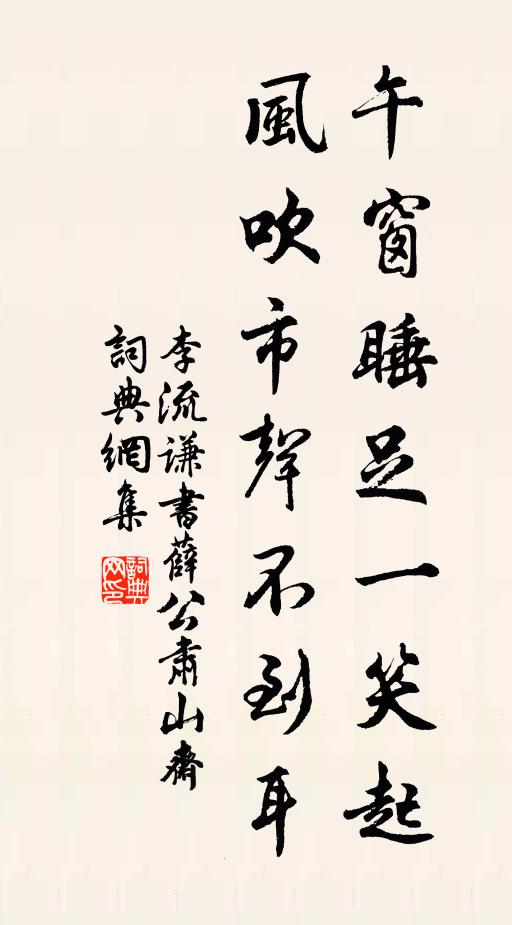 午窗睡足一笑起
風吹市聲不到耳
李流謙書薛公肅山齋
詞典網集
詞典网印